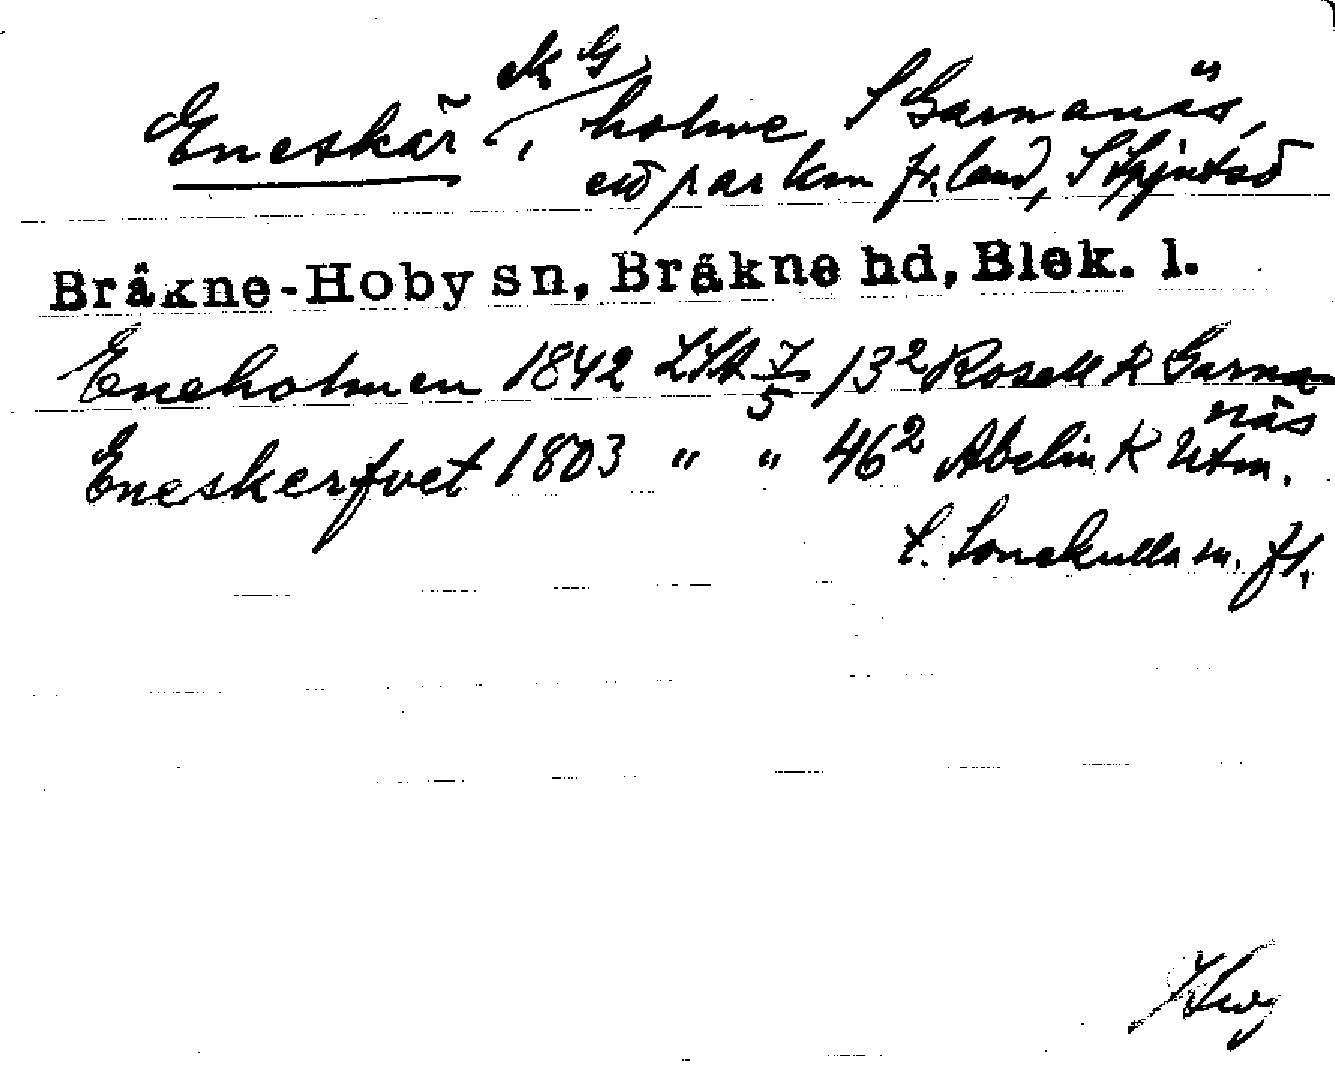 ek G
Eneskär, holme S Garnanäs,
ett par km fr. land, S Spjutsö
Bräkne-Hoby sn, Bräkne hd, Blek. l.
Eneholmen 1842 LSA 7/5 /13² Rosell K Garna-
näs
Eneskerfvet 1803 " " 46² Abelin K Utm.
t. Sonekulla m. fl.